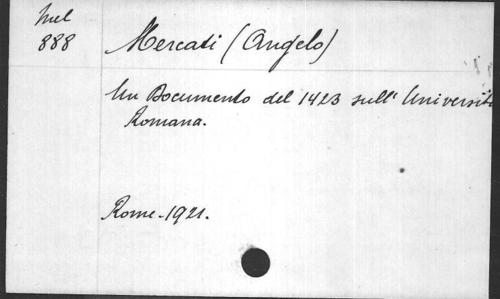 Mel
888
Mercati (Angelo)
Un Documento del 1423 sull' Università
Romana.
Rome-1921.